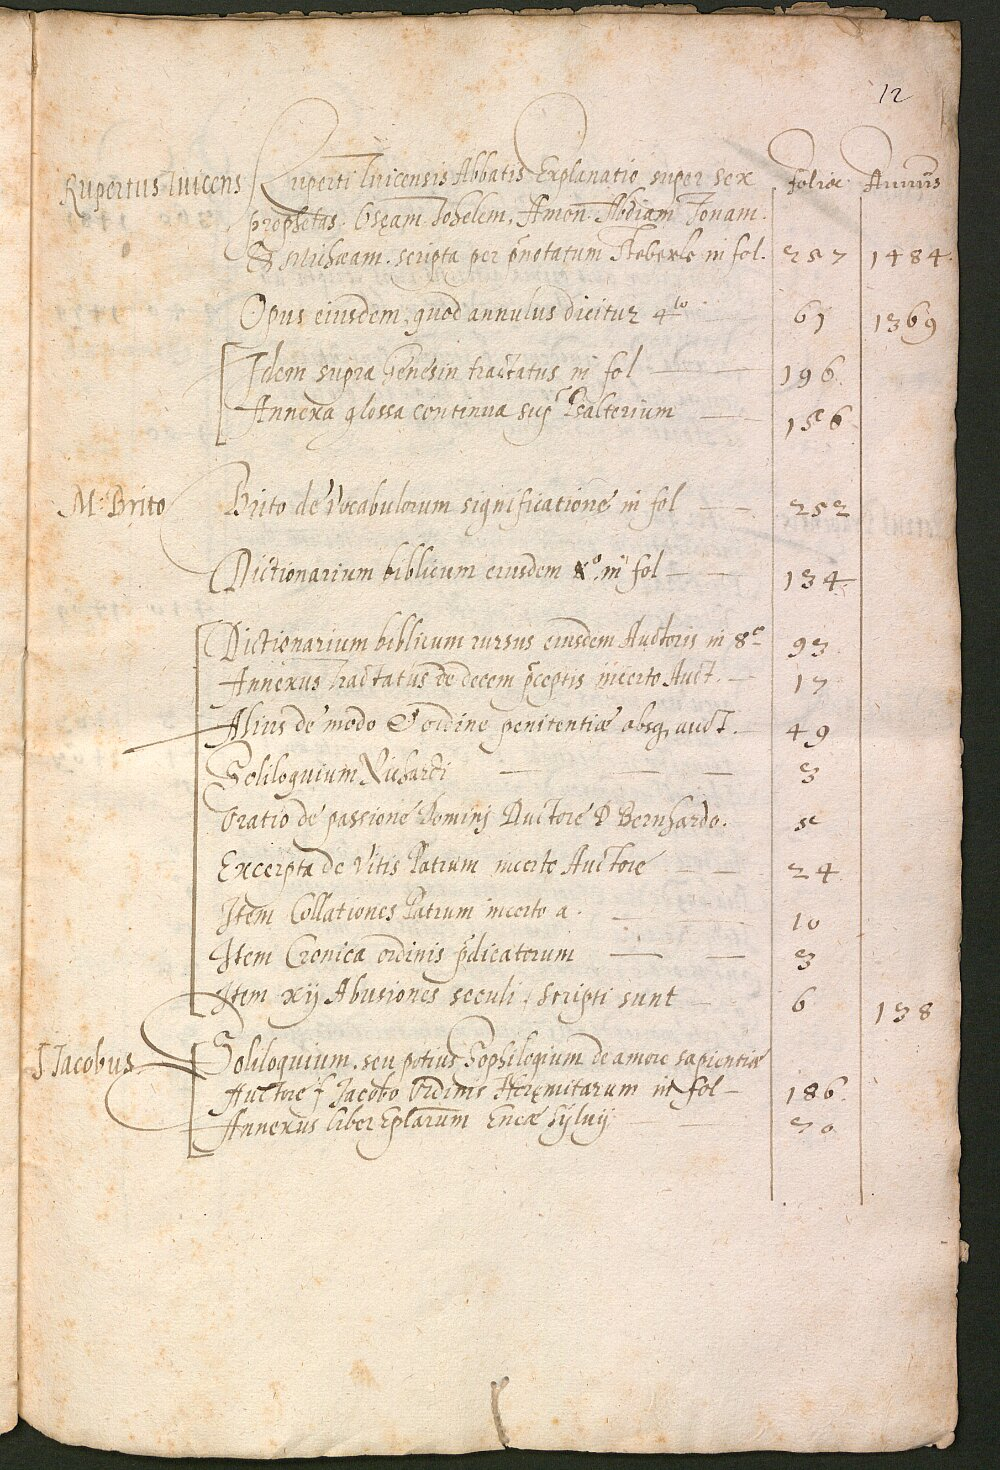 12
Rupertus Tuicens Ruperti Tuicensis Abbatis Explanatio super sex folia Annus
prophetas. Oseam Johelem, Amon. Abdiam Jonam.
& Michæam. scripta per prenotatum Heberle in fol. 257 1484.
Opus eiusdem, quod annulus dicitur 4to 61 1369
Idem supra Genesin tractatus in fol 196.
Annexa glossa continua sup Psalterium 156
M. Brito Brito de Vocabulorum significatione in fol 252
Dictionarium biblicum eiusdem in fol 134.
Dictionarium biblicum rursus eiusdem Auctoris in 8o 93
Annexus tractatus de decem pceptis incerto Auct. 17
Alius de modo & ordine penitentiæ absq, auct. 49
Soliloquium Richardi 3
Oratio de passione Dominj Auctore D Bernhardo. 5
Excerpta de Vitis Patrum incerto Auctore 24
Item Collationes Patrum incerto a. 10
Item Cronica ordinis pdicatorum 3
Item xij Abusiones seculi. scripti sunt 6 138
J Jacobus Soliloquium. seu potius Sophilogium de amore sapientiæ
Auctore f Jacobo Ordinis Heremitarum in fol 186.
Annexus liber Eplarum Eneæ Sylvij 70